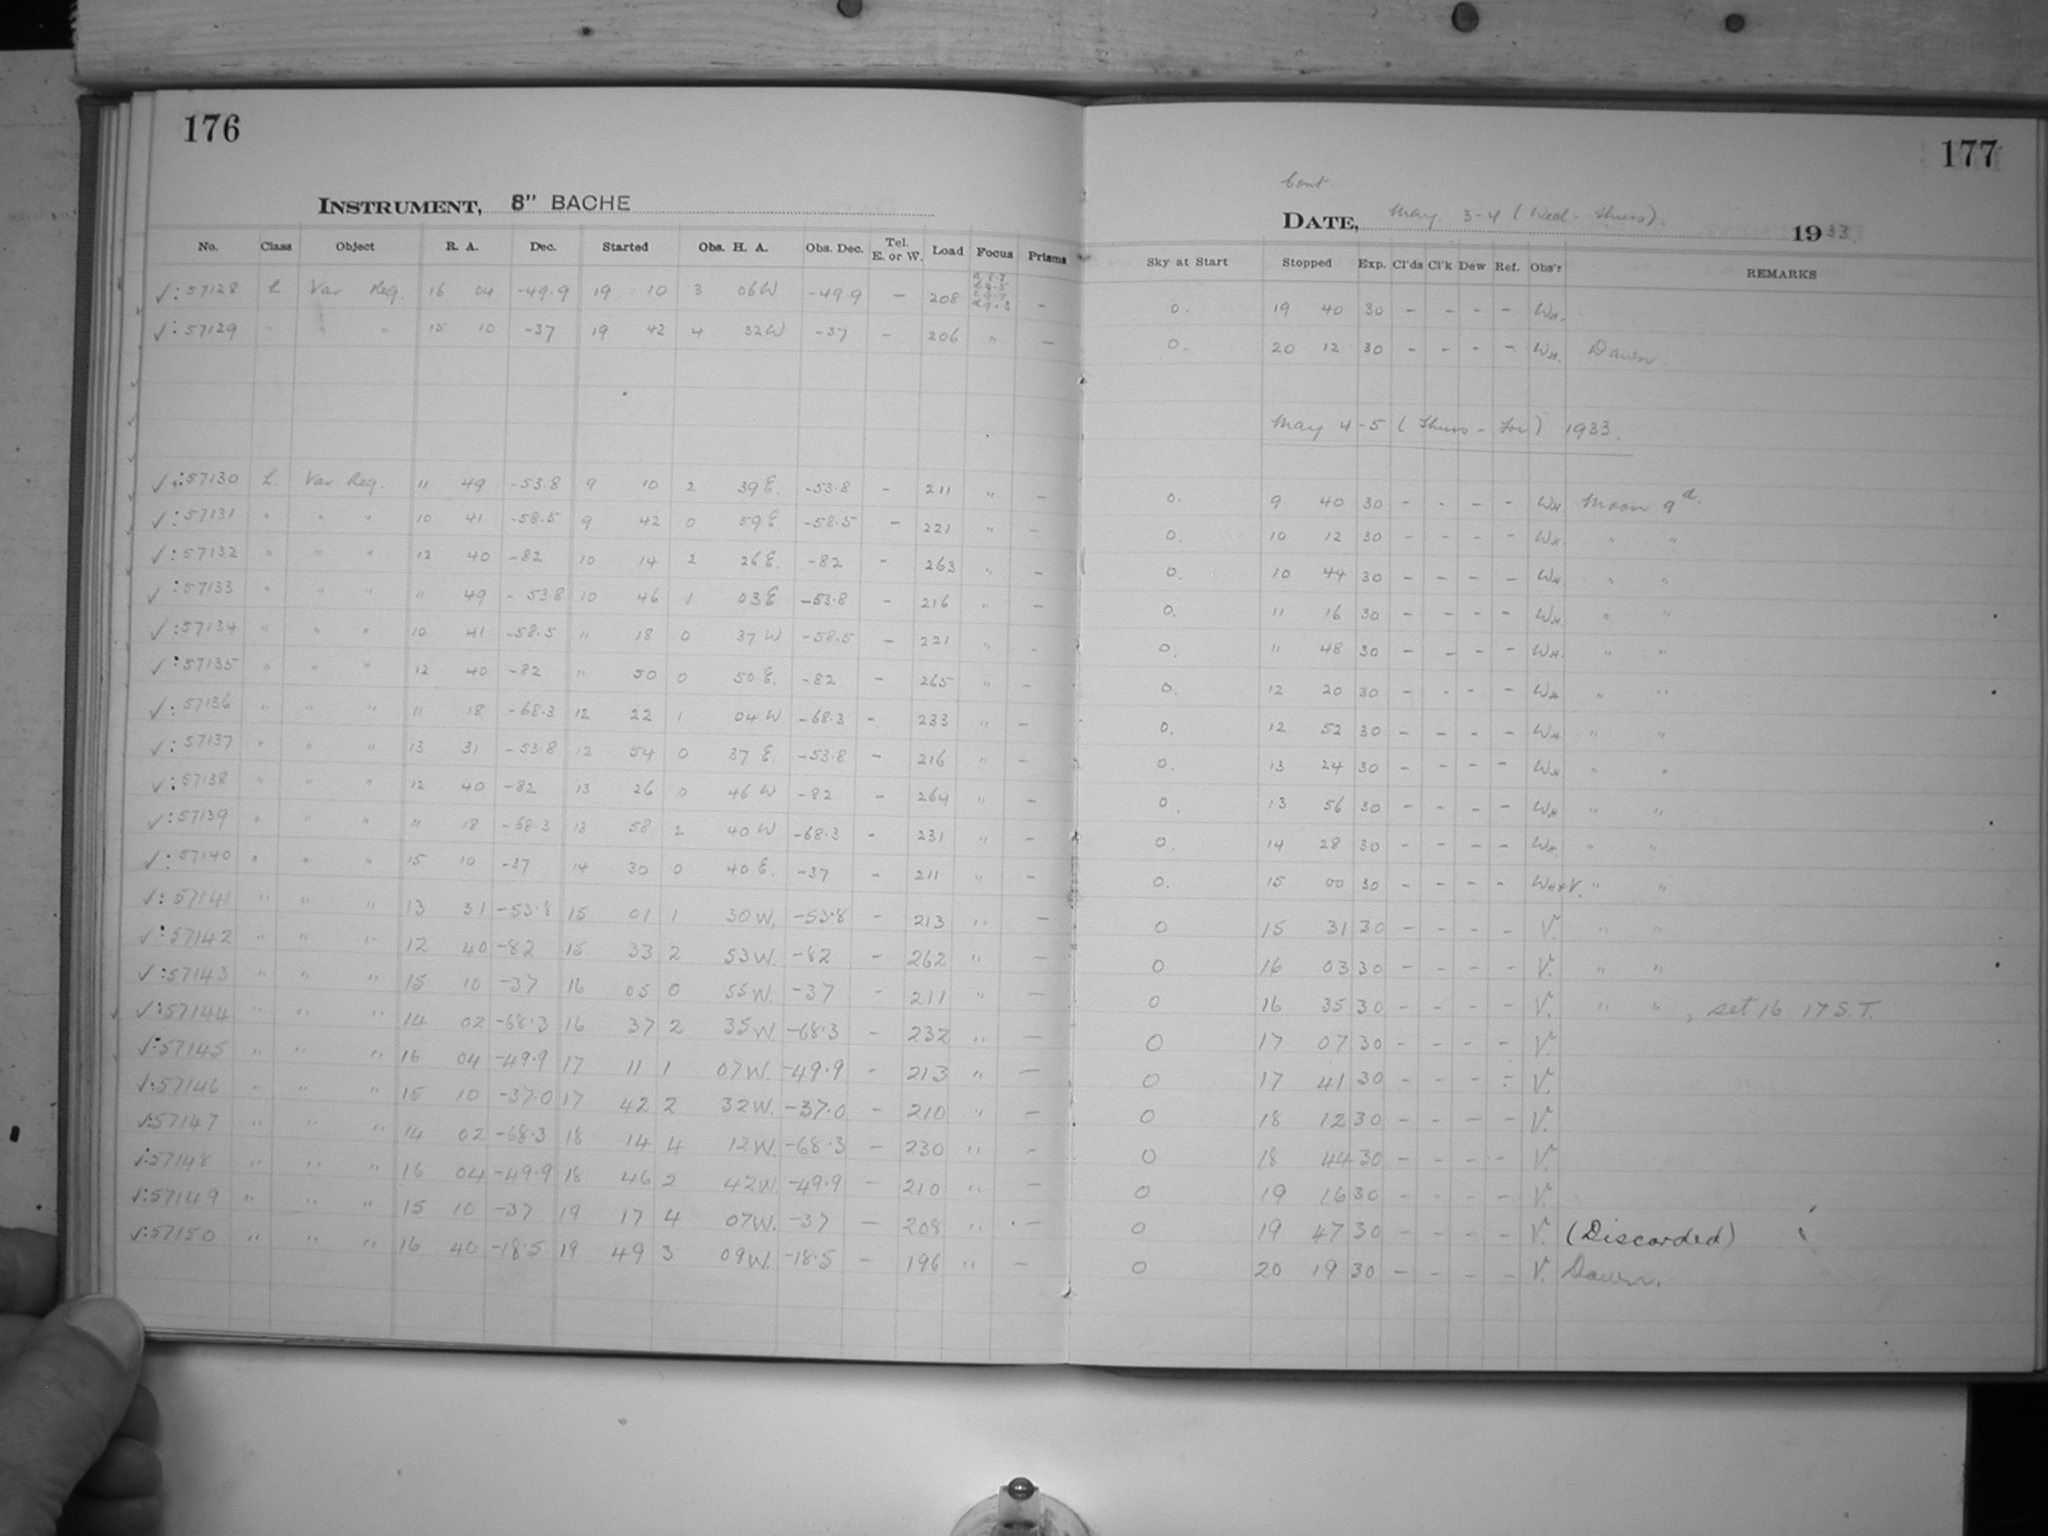 176
INSTRUMENT, 8" BACHE
No. Class Object R. A. Dec. Started Obs. H. A. Obs. Dec. Tel. E. or W. Load Focus Prisms
✓: 57128 L Var Reg. 16 04 -49.9 19 10 3 06W -49.9 - 208 -
✓: 57129 " " " 15 10 -37 19 42 4 32W -37 - 206 " -
✓: 57130 L. Var Reg. 11 49 -53.8 9 10 2 39E. -53.8 - 211 " -
✓: 57131 " " " 10 41 -58.5 9 42 0 59E. -58.5 - 221 " -
✓: 57132 " " " 12 40 -82 10 14 2 26E. -82 - 263 " -
✓: 57133 " " " 11 49 -53.8 10 46 1 03E -53.8 - 216 " -
✓: 57134 " " " 10 41 -58.5 11 18 0 37W -58.5 - 221 " -
✓: 57135 " " " 12 40 -82 11 50 0 50E. -82 - 265 " -
✓: 57136 " " " 11 18 -68.3 12 22 1 04W -68.3 - 233 " -
✓: 57137 " " " 13 31 -53.8 12 54 0 37E. -53.8 - 216 " -
✓: 57138 " " " 12 40 -82 13 26 0 46W -82 - 264 " -
✓: 57139 " " " 11 18 -68.3 13 58 2 40W -68.3 - 231 " -
✓: 57140 " " " 15 10 -37 14 30 0 40E. -37 - 211 " -
✓: 57141 " " " 13 31 -53.8 15 01 1 30W, -53.8 - 213 " -
✓: 57142 " " " 12 40 -82 15 33 2 53W. -82 - 262 " -
✓: 57143 " " " 15 10 -37 16 05 0 55W. -37 - 211 " -
✓: 57144 " " " 14 02 -68.3 16 37 2 35W -68.3 - 232 " -
✓: 57145 " " " 16 04 -49.9 17 11 1 07W. -49.9 - 213 " -
✓: 57146 " " " 15 10 -37.0 17 42 2 32W. -37.0 - 210 " -
✓: 57147 " " " 14 02 -68.3 18 14 4 12W. -68.3 - 230 " -
✓: 57148 " " " 16 04 -49.9 18 46 2 42W. -49.9 - 210 " -
✓: 57149 " " " 15 10 -37 19 17 4 07W. -37 - 208 " -
✓: 57150 " " " 16 40 -18.5 19 49 3 09W. -18.5 - 196 " -
177
Cont.
DATE, May 3-4 (Wed - Thurs). 1933.
Sky at Start Stopped Exp. Cl'ds Cl'k Dew Ref. Obs'r REMARKS
0. 19 40 30 - - - - WH.
0. 20 12 30 - - - - WH. Dawn.
May 4-5 (Thurs - Fri) 1933.
0. 9 40 30 - - - - WH Moon 9d.
0. 10 12 30 - - - - WH. " "
0. 10 44 30 - - - - WH. " "
0. 11 16 30 - - - - WH. " "
0. 11 48 30 - - - - WH. " "
0. 12 20 30 - - - - WH " "
0. 12 52 30 - - - - WH " "
0. 13 24 30 - - - - WH " "
0. 13 56 30 - - - - WH " "
0. 14 28 30 - - - - WH. " "
0. 15 00 30 - - - - WH+V. " "
0 15 31 30 - - - - V. " "
0 16 03 30 - - - - V. " "
0 16 35 30 - - - - V. " " , set 16 17 S.T.
0 17 07 30 - - - - V.
0 17 41 30 - - - - V.
0 18 12 30 - - - - V.
0 18 44 30 - - - - V.
0 19 16 30 - - - - V.
0 19 47 30 - - - - V. (Discarded)
0 20 19 30 - - - - V. Dawn.